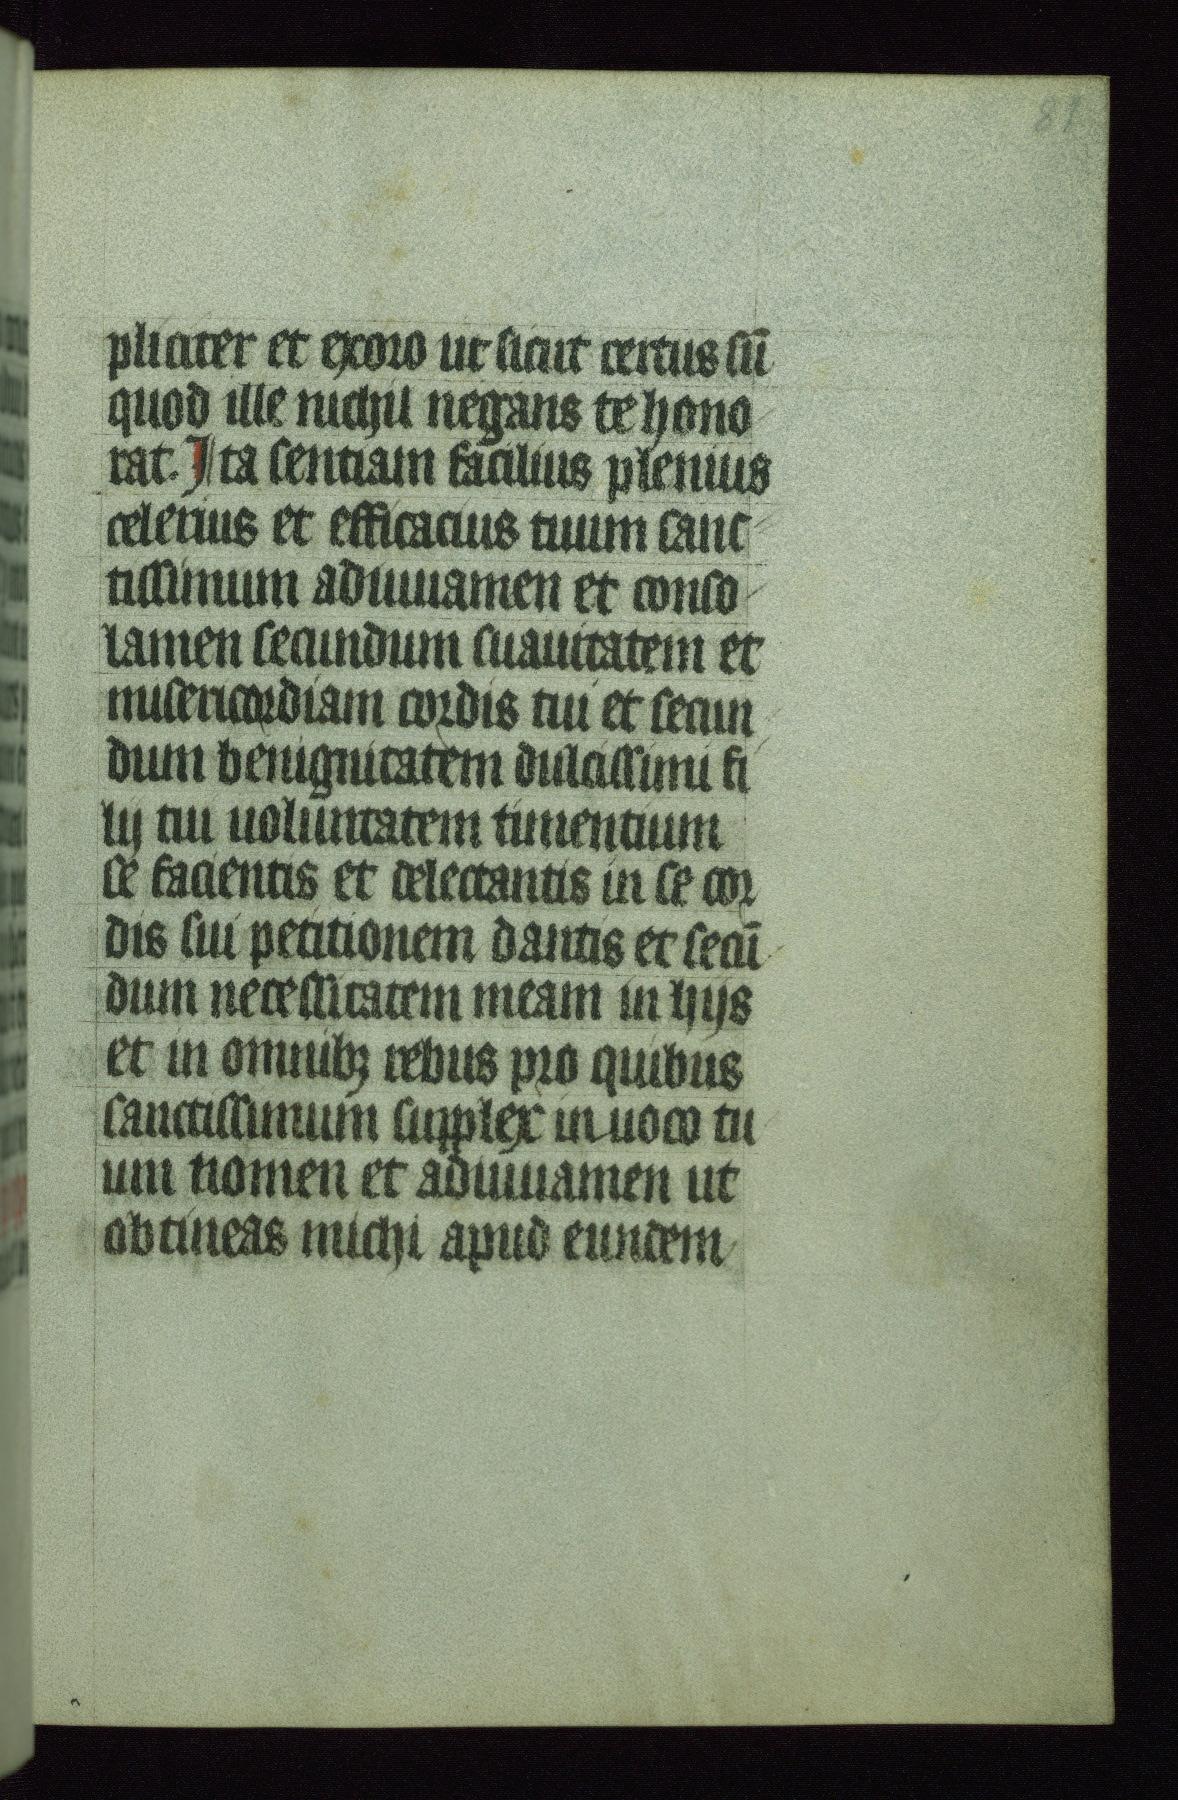 81
pliciter et exoro ut sicut certus sū
quod ille nichil negans te hono
rat. Ita sentiam facilius plenius
celerius et efficacius tuum sanc
tissimum adiuuamen et conso
lamen secundum suauitatem et
misericordiam cordis tui et secun
dum benignitatem dulcissimi fi
lij tui uoluntatem timentium
se facientis et delectantis in se cor
dis sui petitionem dantis et secū
dum necessitatem meam in hijs
et in omnibꝫ rebus pro quibus
sanctissimum supplex in uoco tu
um nomen et adiuuamen ut
obtineas michi apud eundem